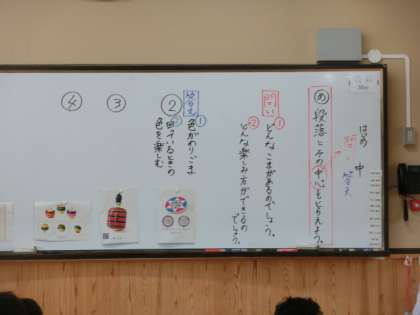 はじめ 中
問い 答え
め 段落とその中心をとらえよう。
問い
① どんなこまがあるのでしょう。
② どんな楽しみ方ができるのでしょう。
答え
②
① 色がわりごま
② 回っているときの
色を楽しむ
③
④